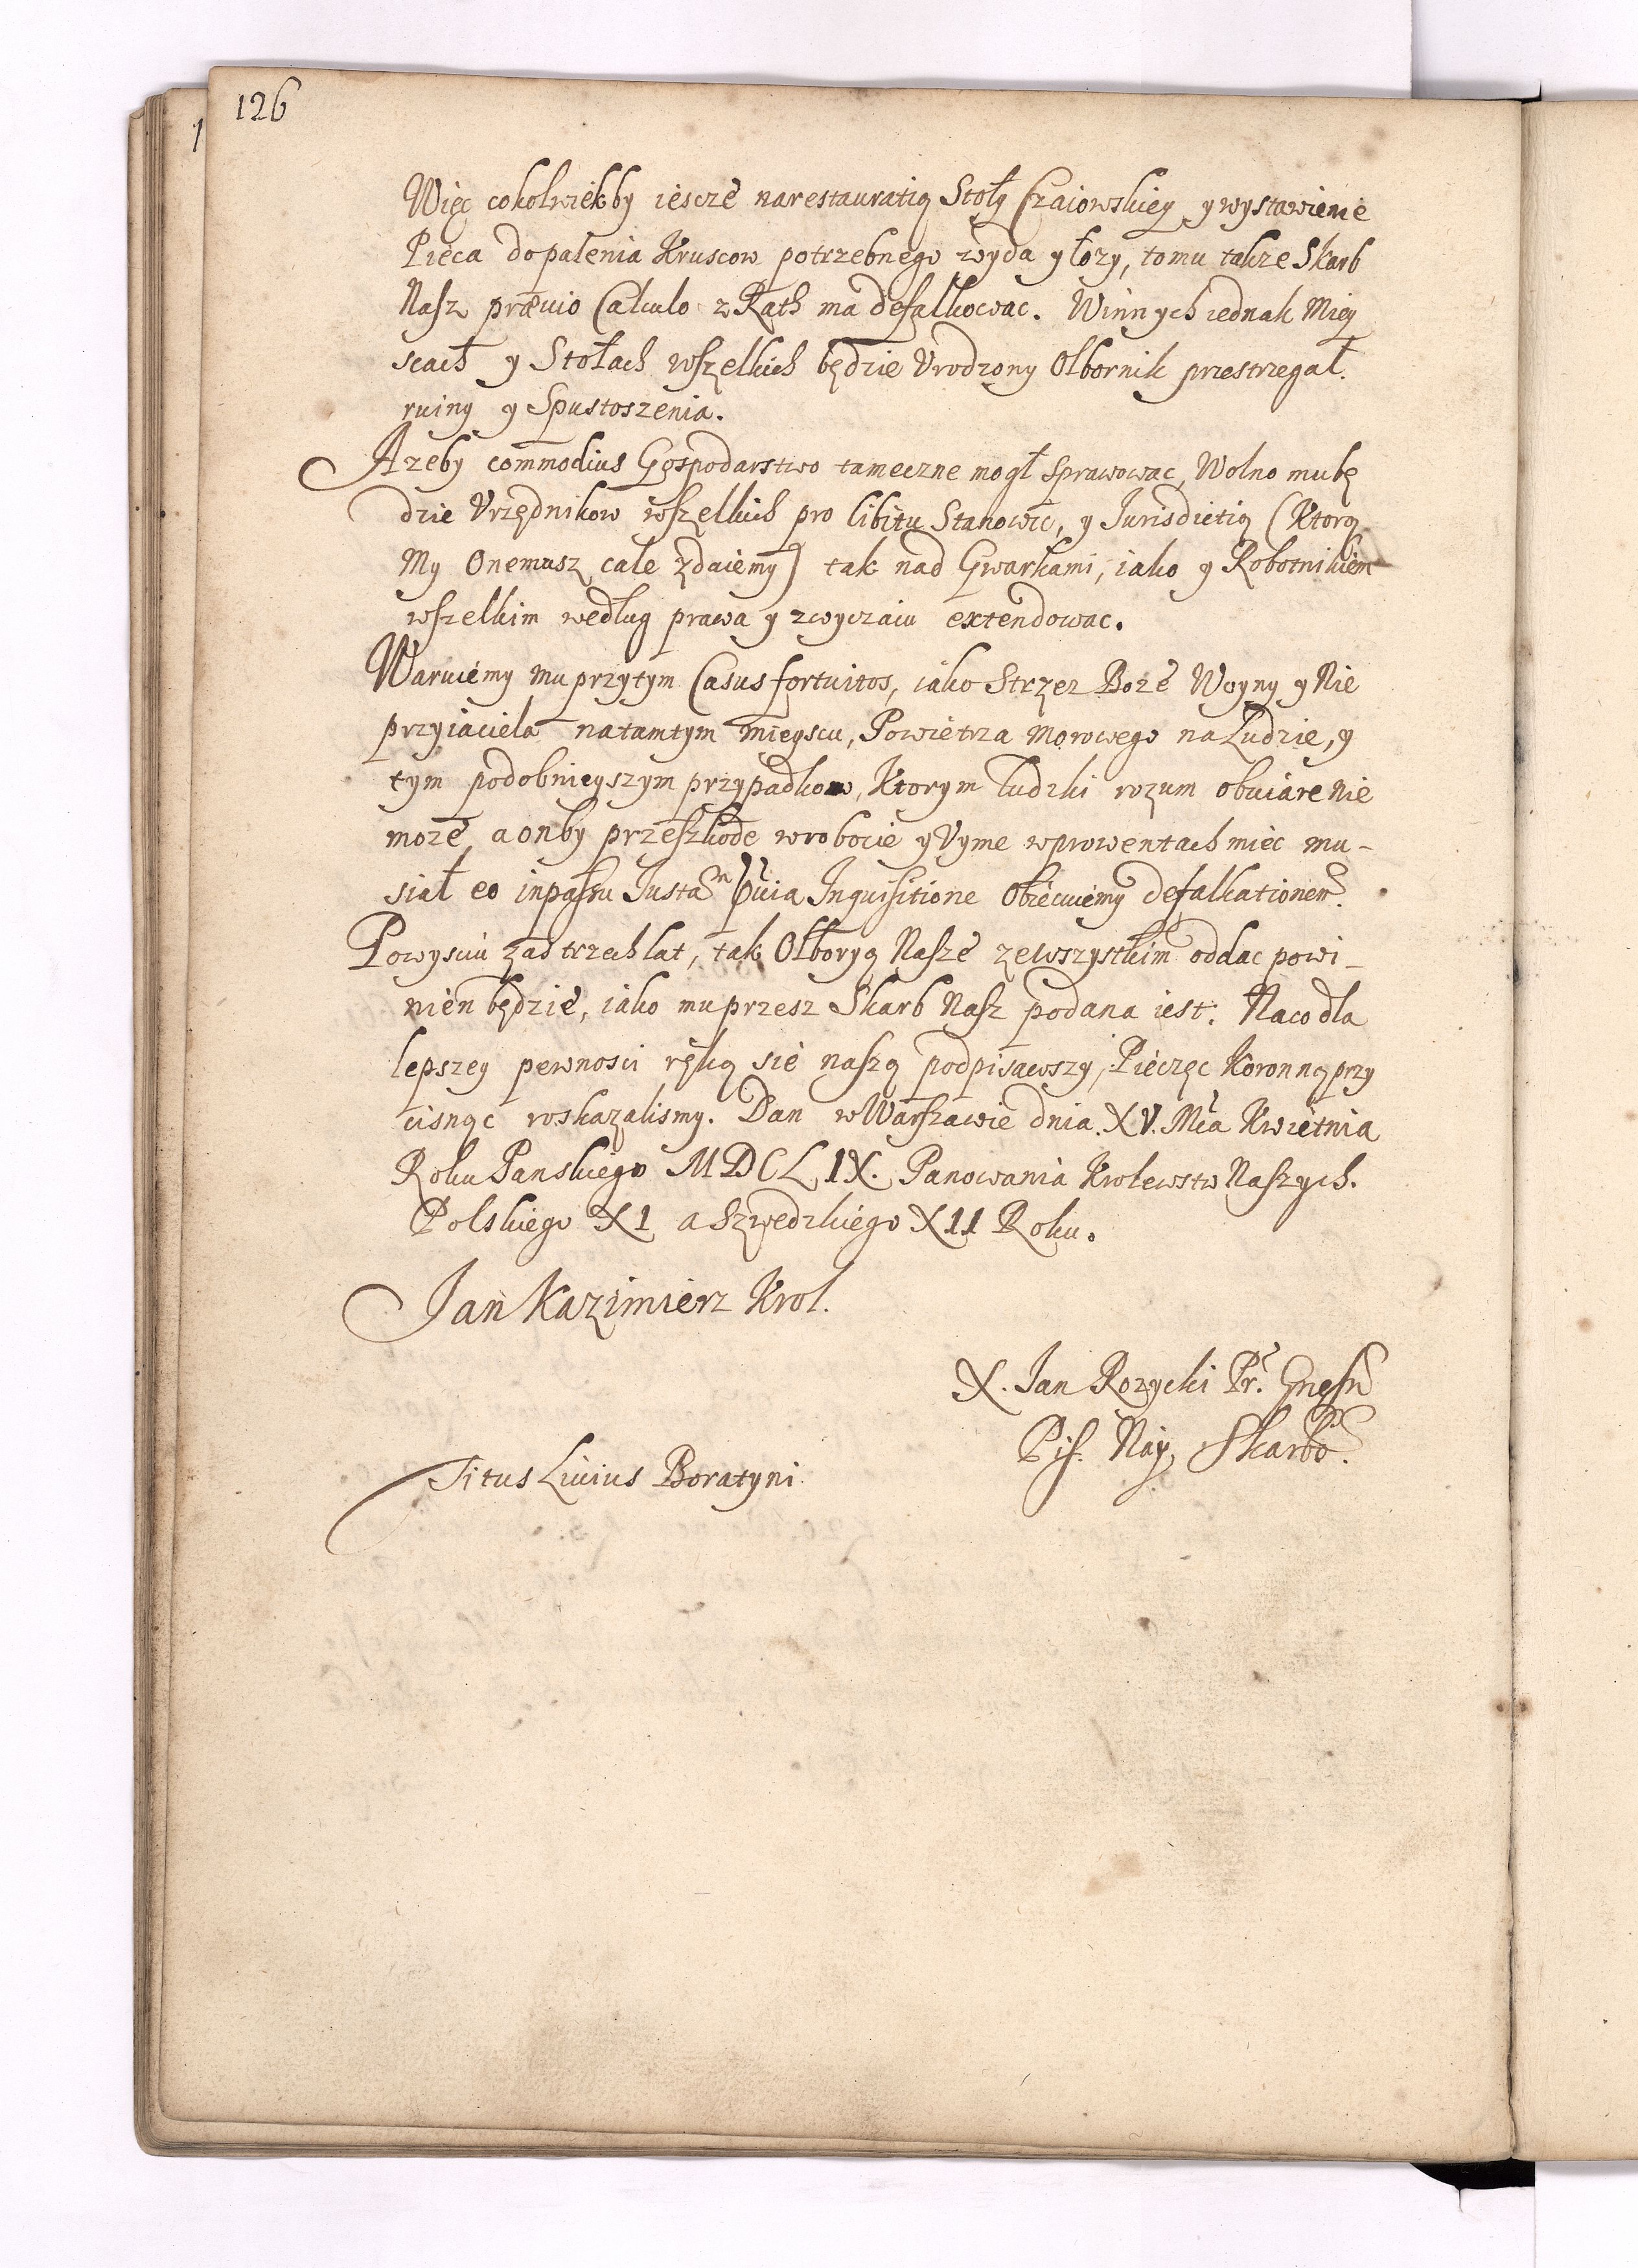 126
Więc cokolwiekby iescze narestauratią Stoły Czaiowskiey y wystawienie
Pieca dopalenia Kruscow potrzebnego wyda y łozy, tomu takze Skarb
Nasz prævio Calculo z Rath ma defalkowac. Winnych iednak Miey
scach y Stołach wszelkich będzie Vrodzony Olbornik przestrzegał
ruiny y Spustoszenia.
Azeby commodius Gospodarstwo tameczne mogł Sprawowac, Wolno mu bę
dzie Vrzędnikow wszelkich pro libitu Stanowic, y Jurisdictią (Ktorą
My Onemusz cale zdaiemy) tak nad Gwarkami, iako y Robotnikiem
wszelkim według prawa y zwyczaiu extendowac.
Waruiemy mu przytym Casus fortuitos, iako Strzez Boze Woyny y Nie
przyiaciela natamtym mieyscu, Powietrza Morowego na Ludzie, y
tym podobnieyszym przypadkow, Ktorym ludzki rozum obuiare nie
moze, a onby przeszkode wrobocie y Vyme wprowentach miec mu-
siał eo inpassu Justam Inquisitione Obiecuiemy defalkationem.
Powysciu zas trzech lat, tak Olboryą Nasze zewszystkim oddac powi-
nien będzie, iako mu przesz Skarb Nasz podana iest. Naco dla
lepszey pewnosci ręką sie naszą podpisawszy, Pieczęc Koronną przy
cisnąc roskazalismy. Dan w Warszawie dnia XV. Mca Kwietnia
Roku Panskiego MDCLIX. Panowania Krolewstw Naszych.
Polskiego XI a Szwedzkiego XII Roku.
Jan Kazimierz Krol.
X. Jan Rozycki Pr. Gnesn
Pis. Skarbo.
Titus Liuius Boratyni